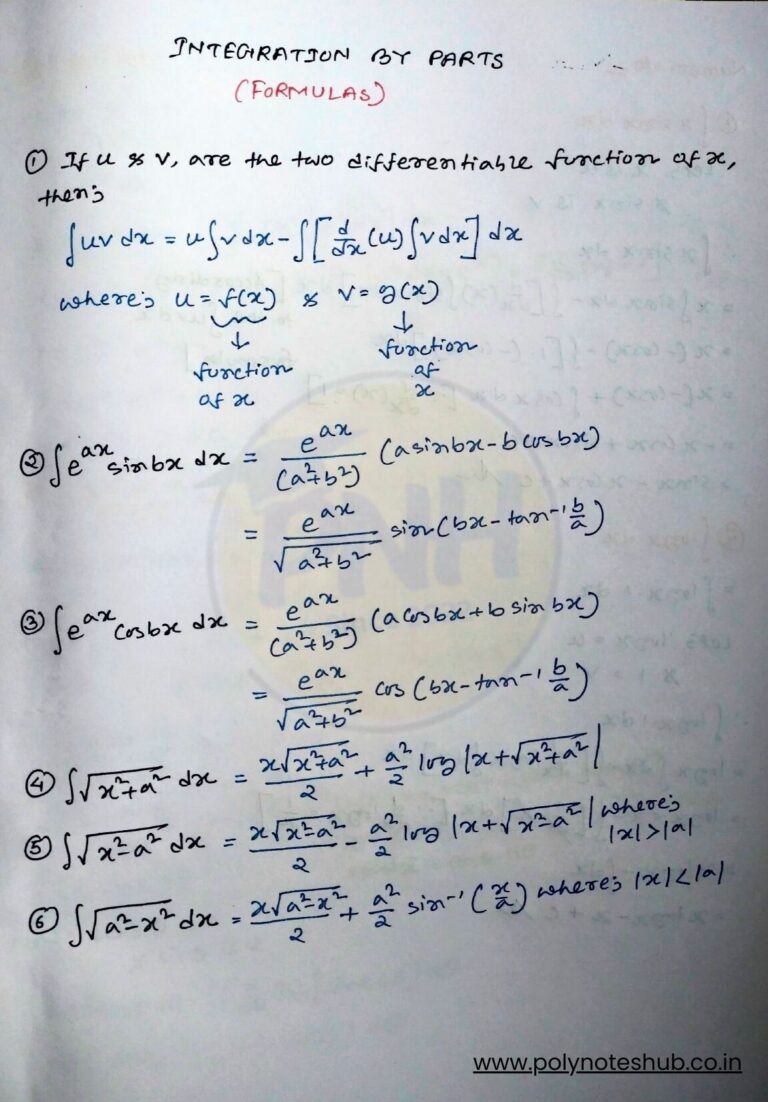 INTEGRATION BY PARTS
(FORMULAS)
① If u & v, are the two differentiable function of x,
then:
∫uv dx = u∫v dx - ∫[d/dx (u)∫v dx] dx
where: u = f(x) & v = g(x)
↓ ↓
function function
of x of x
② ∫e^ax sin bx dx = e^ax/(a²+b²) (a sin bx - b cos bx)
= e^ax/√(a²+b²) sin (bx - tan⁻¹ b/a)
③ ∫e^ax cos bx dx = e^ax/(a²+b²) (a cos bx + b sin bx)
= e^ax/√(a²+b²) cos (bx - tan⁻¹ b/a)
④ ∫√(x²+a²) dx = x√(x²+a²)/2 + a²/2 log |x+√(x²+a²)|
⑤ ∫√(x²-a²) dx = x√(x²-a²)/2 - a²/2 log |x+√(x²-a²)| where: |x|>|a|
⑥ ∫√(a²-x²) dx = x√(a²-x²)/2 + a²/2 sin⁻¹ (x/a) where: |x|<|a|
PNH
www.polynoteshub.co.in